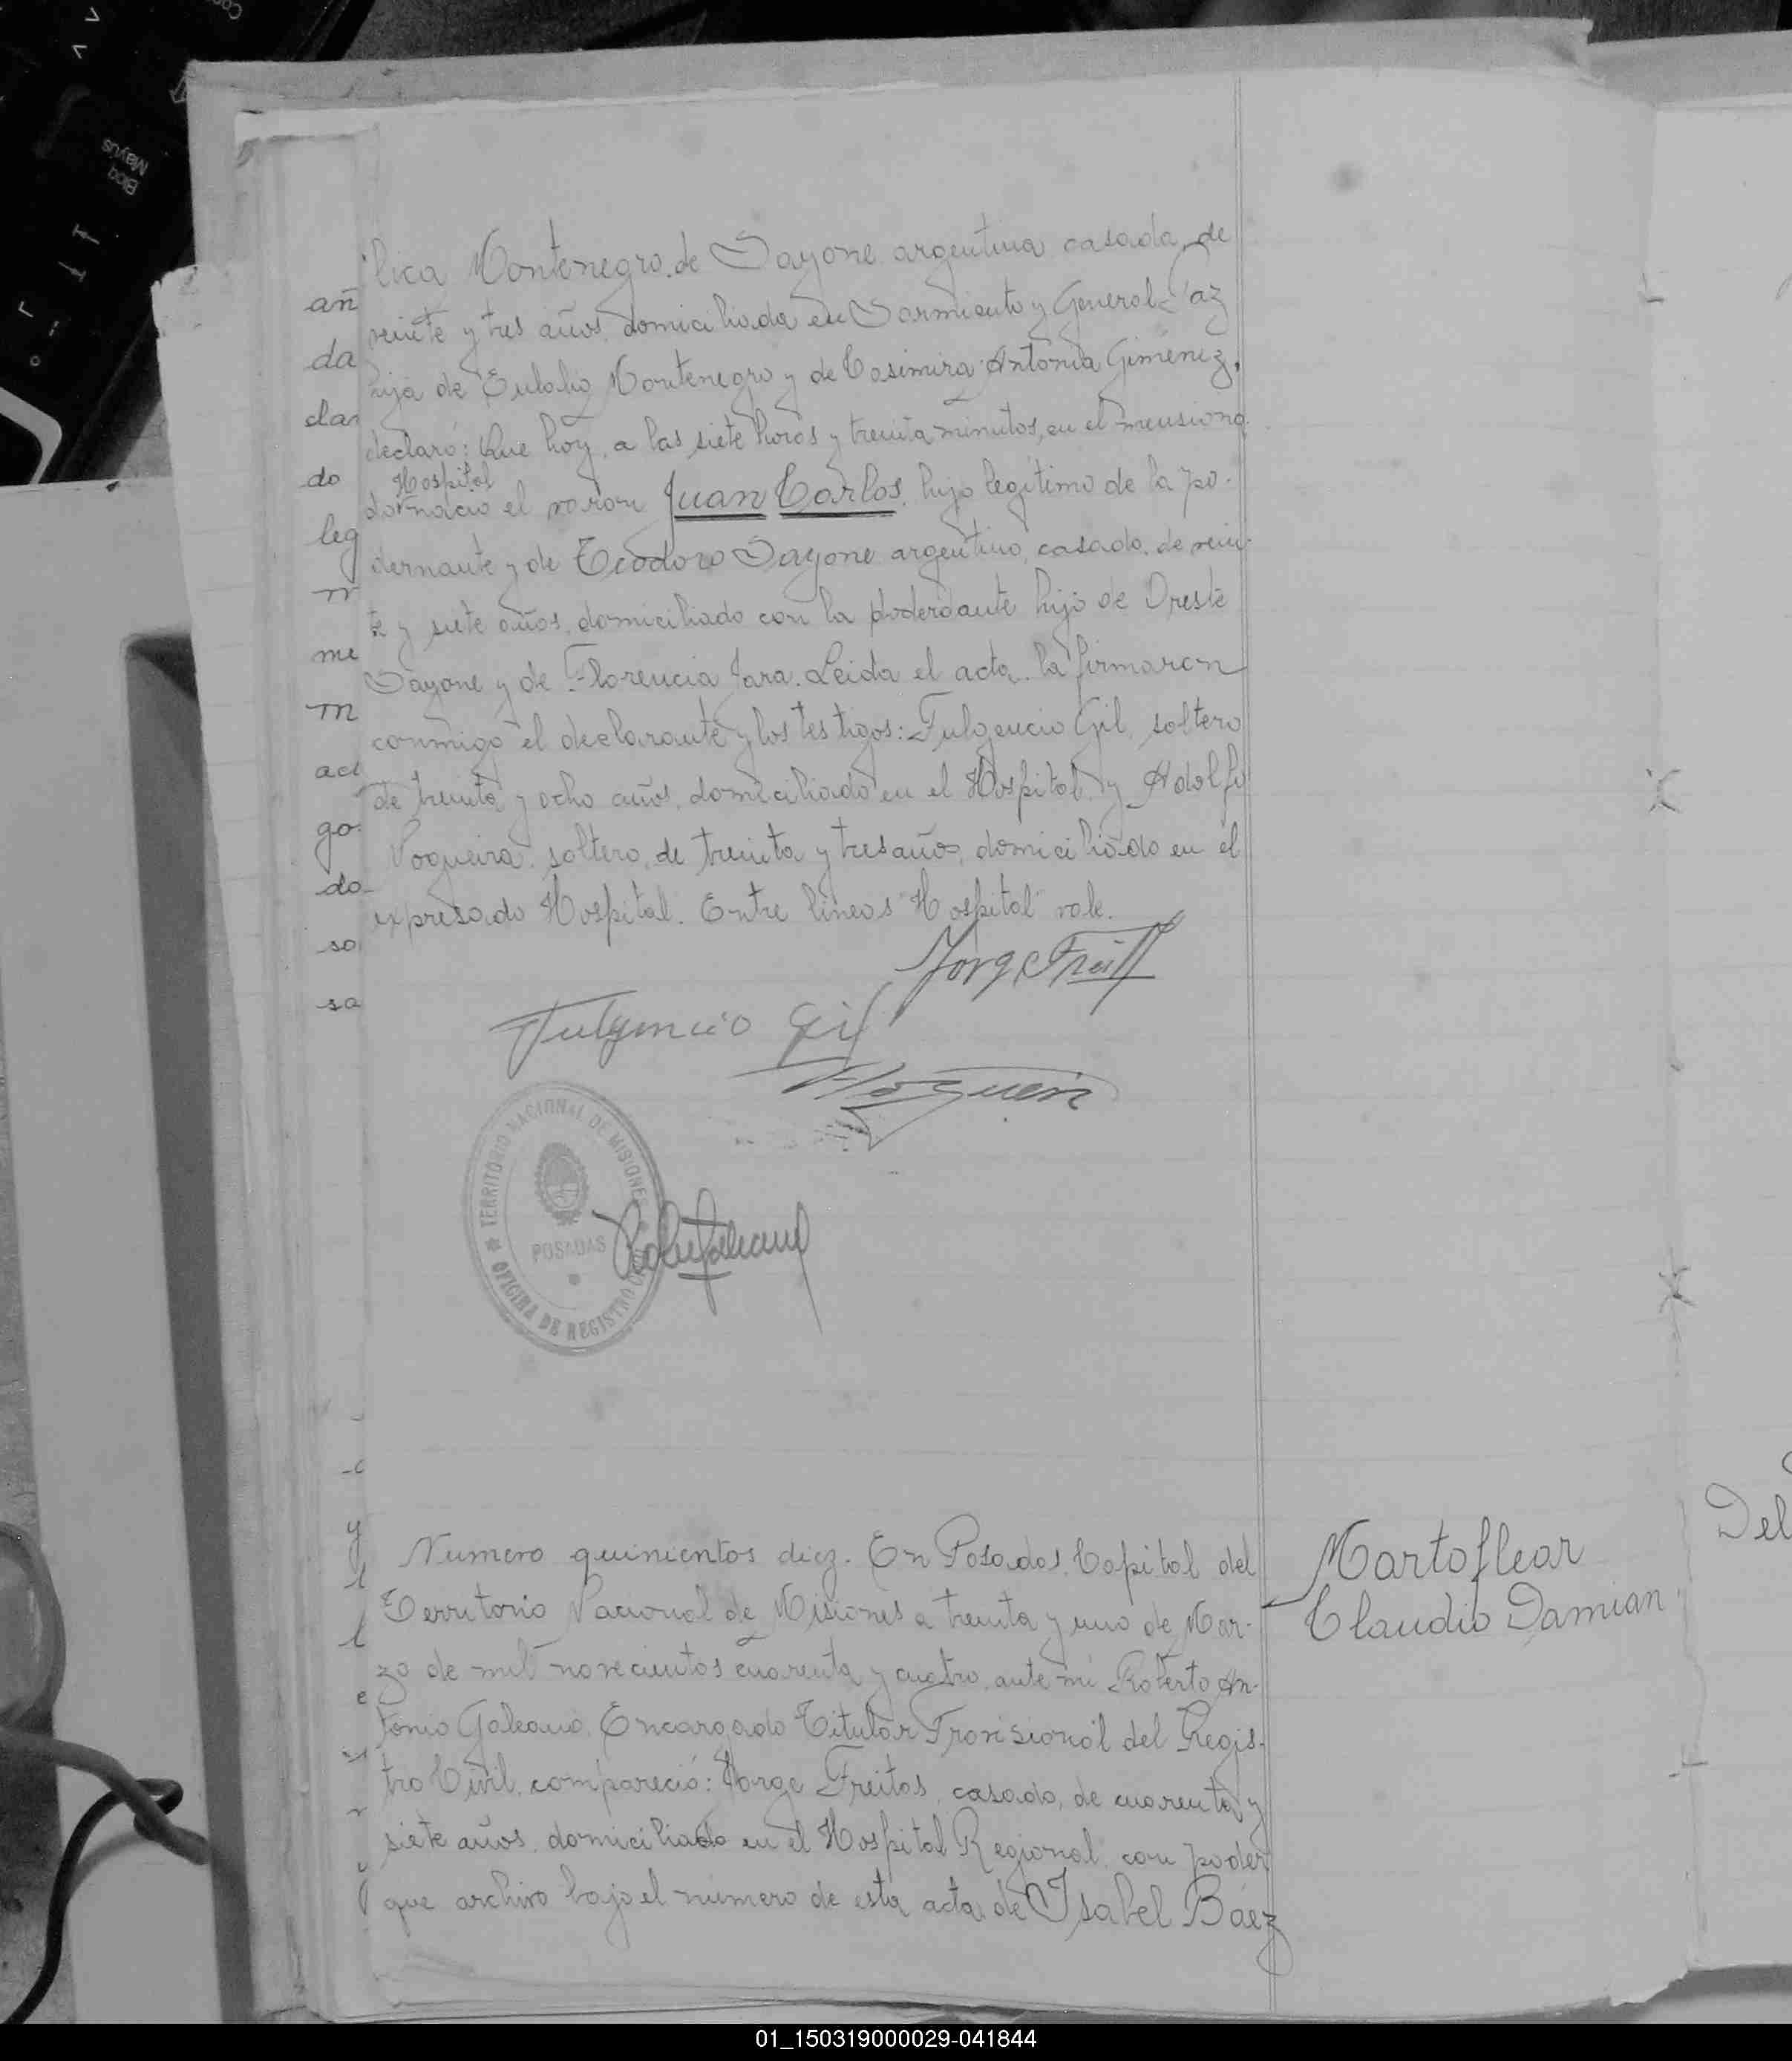 lica Montenegro de Sayone argentina casada, de
veinte y tres años domiciliada en Sarmiento y General Paz
hija de Eulalio Montenegro y de Casimira Antonia Giménez,
declaró: Que hoy, a las siete horas y treinta minutos, en el mensiona
Hospital
do nació el varon Juan Carlos, hijo legítimo de la po-
dernante y de Teodoro Sayone argentino, casado, de vein-
te y siete años, domiciliado con la poderdante hijo de Oreste
Sayone y de Florencia Jara. Leida el acta la firmaron
conmigo el declarante y los testigos: Fulgencio Gil, soltero
de treinta y ocho años, domiciliado en el Hospital y Adolfo
Nogueira soltero, de treinta y tres años, domiciliado en el
expresado Hospital. Entre lineas "Hospital" vale.
Jorge Freitas
Fulgencio Gil
TERRITORIO NACIONAL DE MISIONES
POSADAS
OFICINA DE REGISTRO
Numero quinientos diez. En Posadas, Capital del
Territorio Nacional de Misiones a treinta y uno de Mar-
zo de mil novecientos cuarenta y cuatro, ante mi Roberto An-
tonio Galeano, Encargado Titular Provisional del Regis-
tro Civil, compareció: Jorge Freitas, casado, de cuarenta y
siete años, domiciliado en el Hospital Regional, con poder
que archivo bajo el número de esta acta de Isabel Báez
Martoflear
Claudio Damian
Del
añ
da
clar
do
leg
me
m
act
go
do
so
sa
Bloq
Mayús
01_150319000029-041844